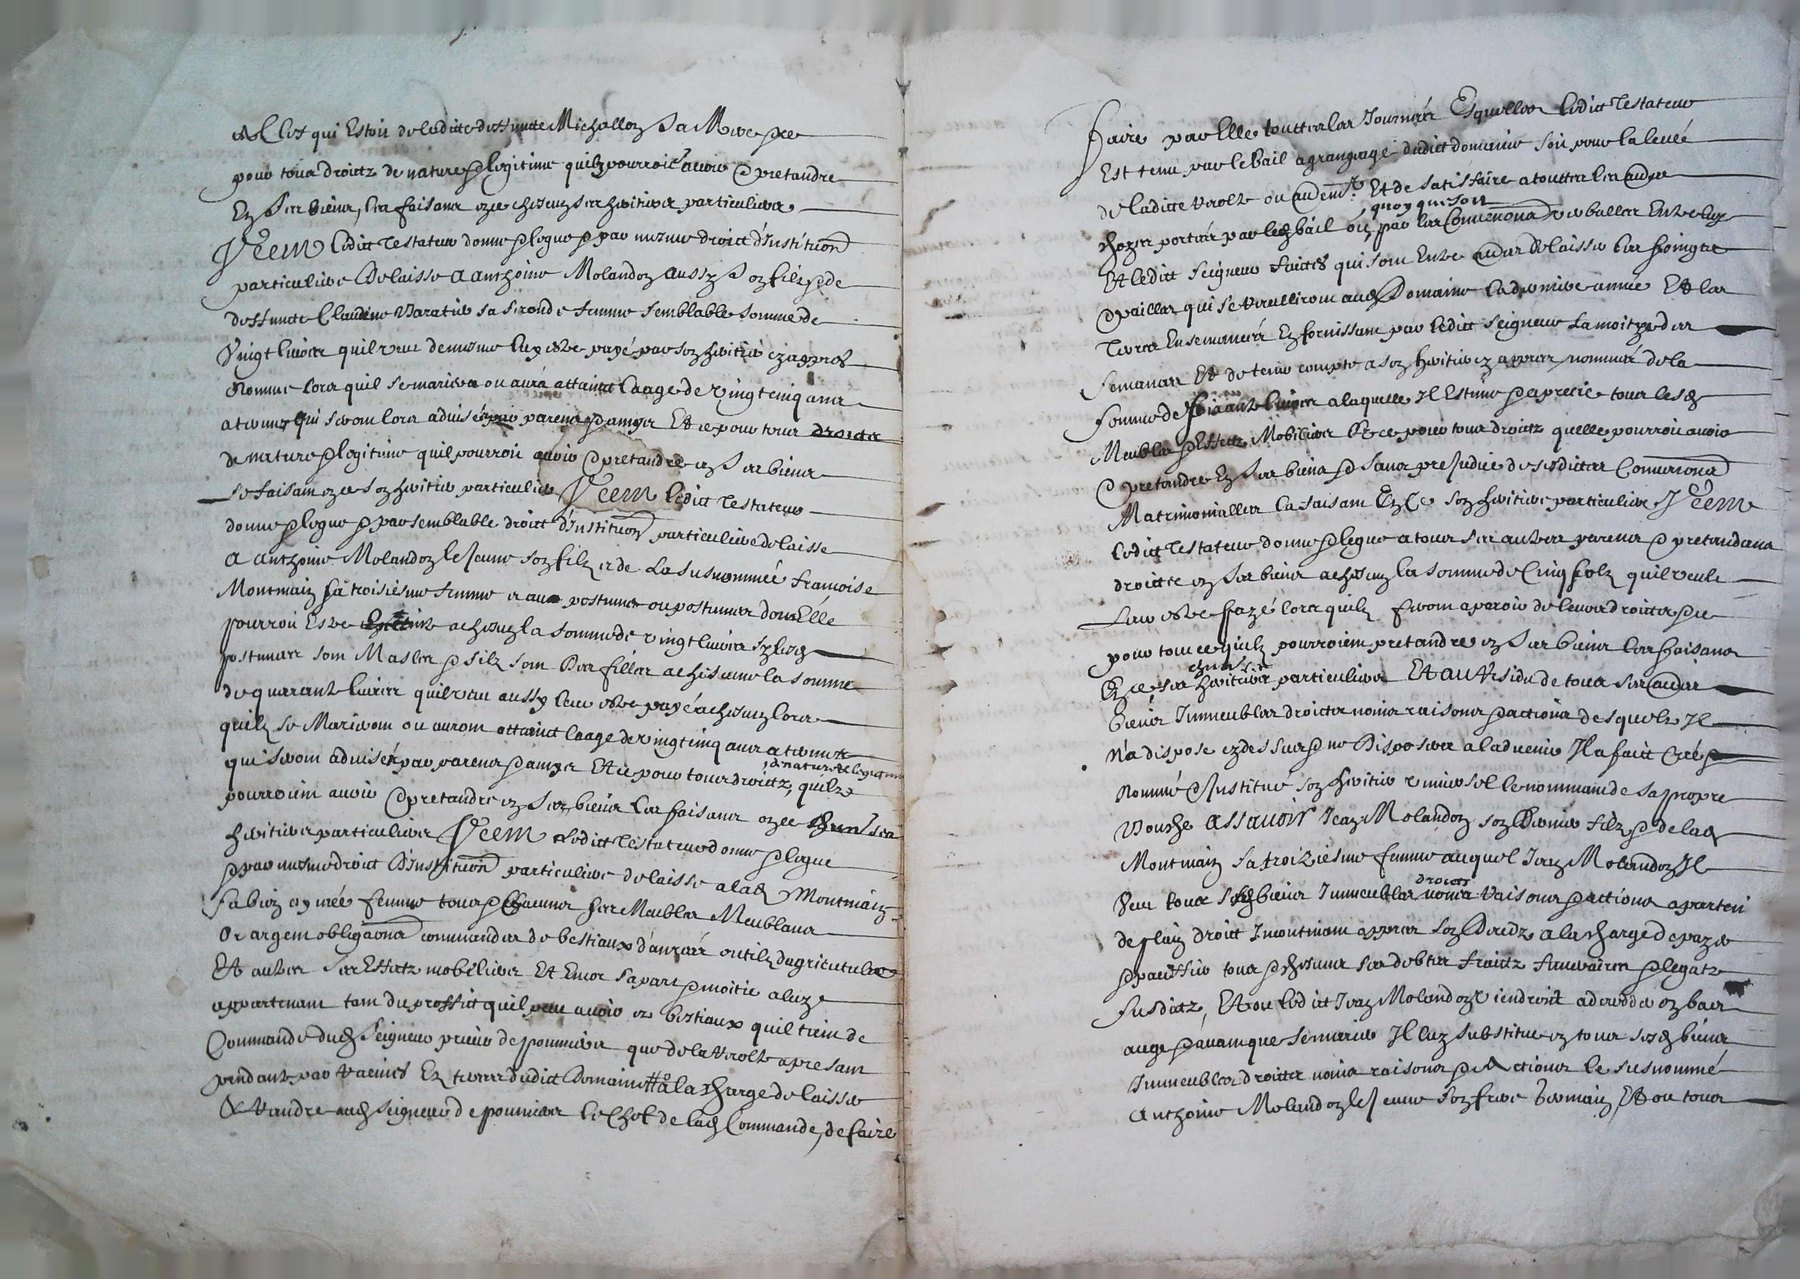 qui estoit de ladicte deffuncte Michallon sa Mere
pour tous droictz de nature & legitime quilz pourroict avoir & pretandre
En ses biens, les faisans en ce chescung ses heritiers particuliers
Item ledict Testateur donne & legue & par mesme droict d'Institution
particuliere delaisse a Anthoine Molandon aussy son filz & de
deffuncte Claudine sa seconde femme semblable somme de
Vingt livres quil veut de mesme luy estre payé par son heritier cy appres
Nommé lors quil se mariera ou aura attainct laage de vingt cinq ans
a termes qui seront lors advisés par parens & amys Et ce pour tous droictz
de nature & legitime quil pourroit avoir & pretandre en ses biens
Le faisant en ce son heritier particulier Item ledict Testateur
donne & legue & par semblable droict d'Institution particuliere delaisse
A Anthoine Molandon le Jeune son filz et de La susnommée francoise
Montmain sa troisiesme femme et aux postumes ou postumes dont Elle
pourroit Estre a chescung la somme de vingt livres sy lesd
postumes sont Masles & silz sont des filles a chescune la somme
de quarante livres quil veut aussy leur estre payé a chescung lors
quilz se Marieront ou auront attainct laage de vingt cinq ans a termes
qui seront advisés par parens & amys Et ce pour tous droictz, de nature & legitime quilz
pourroient avoir & pretandre en ses biens les faisans en ce
heritiers particuliers Item ledict Testateur donne & legue
& par mesme droict d'Institution particuliere delaisse a lad Montmain
sa bien aymée femme tous & chacuns ses Meubles Meublans
Or argent obligations commandes de bestiaux outilz dagriculture
Et autres ses Effectz mobiliers Et Encor sa part & moitié a luy
appartenant tant du proffict quil peut avoir ez bestiaux quil tient de
Commande dud Seigneur prieur de pommier que de la
pendante par racines Ez terres dudict Domaine a la charge de laisser
& Randre aud Seigneur de pommier le Chef de lad Commande, de faire
faire par Elle touttes les Journées Esquelles ledict Testateur
Est tenu par le bail a grangeage dudict domaine soit pour la levée
de ladicte Et de satisfaire a touttes les autres
quoy que soit
charges portées par led bail ou par les Conventions verballes Entre luy
Et ledict Seigneur faictes qui sont Entre autres de laisser les foings &
pailles qui se aud Domaine la derniere année Et les
Terres Ensemencées En fornissant par ledict Seigneur La moitié des
semances Et de tenir compte a son heritier cy appres nommé de la
somme de livres a laquelle Il Estime & apretie tous lesd
Meubles & Effectz Mobiliers Et ce pour tous droictz quelle pourroit avoir
& pretandre En ses biens & sans prejudice de sesdictes Conventions
Matrimonialles La faisant En Ce son heritiere particuliere Item
Ledict Testateur donne & legue a tous ses autres parens & pretandans
droictz en ses biens a chescung la somme de Cinq solz quil veult
Leur estre payé lors quilz feront aparoir de leurs droictz &
pour tout ce quilz pourroient pretandre en ses biens les faisans
En ce ses heritiers particuliers Et au Residu de tous ses autres
biens Immeubles droictz noms raisons & actions desquelz Il
n'a disposé cy dessus & ne disposera a ladvenir Il a faict Créé &
Nommé & Institué son heritier universel le nommant de sa propre
bouche assavoir Jean Molandon son filz & de lad
Montmain sa troiziesme femme auquel Jean Molandon Il
Veut tous sesd biens Immeubles droictz noms Raisons & actions apartenir
de plain droict Incontinant appres son Deredz a la charge de payer
& tous & chescuns ses debtes fraictz funeraires & legatz
susdictz, Et ou ledict Jean Molandon viendroit a deredder en bas
aage & avant que se marier Il luy substitue en tous sesd biens
Immeubles droictz noms raisons & Actions le susnommé
Anthoine Molandon le Jeune son frere Germain Et ou tous